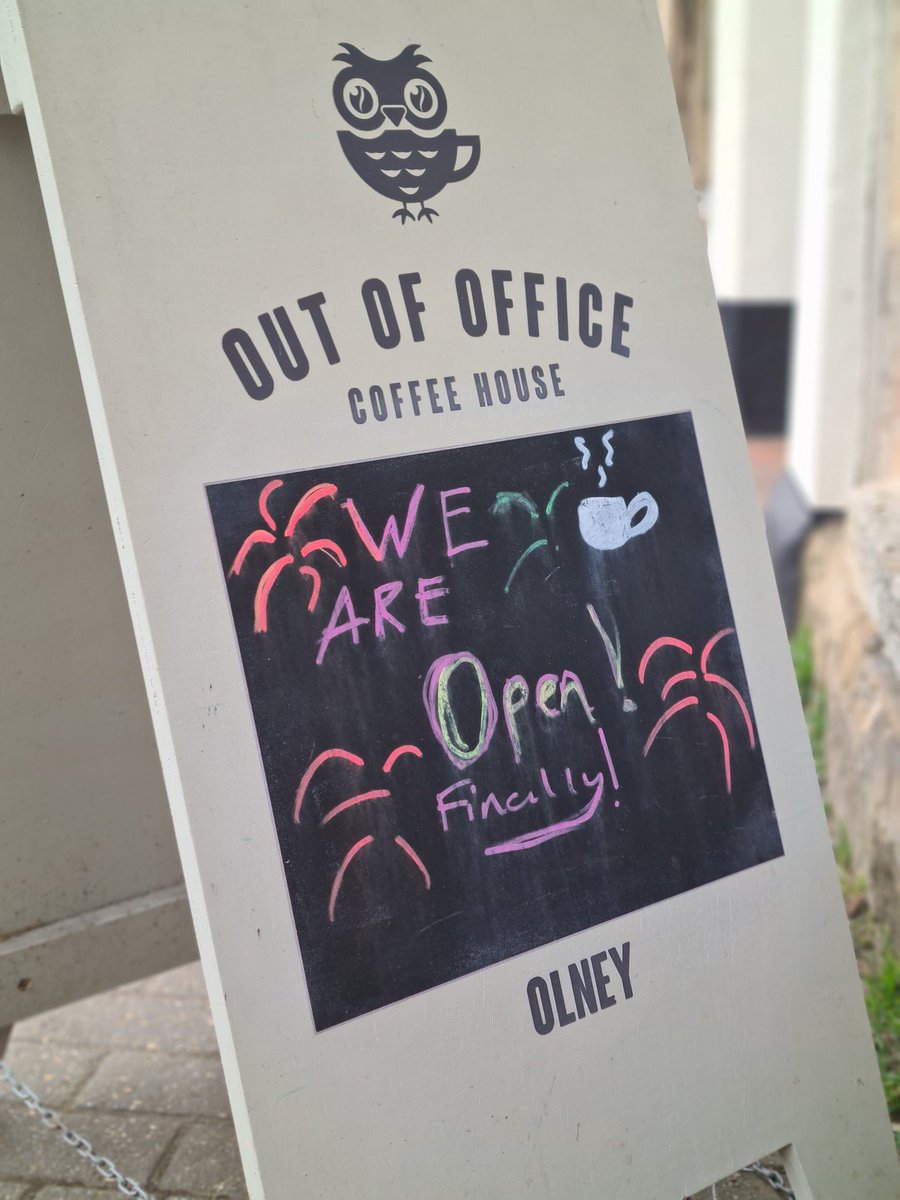 OUT OF OFFICE
COFFEE HOUSE
WE
ARE
Open!
Finally!
OLNEY